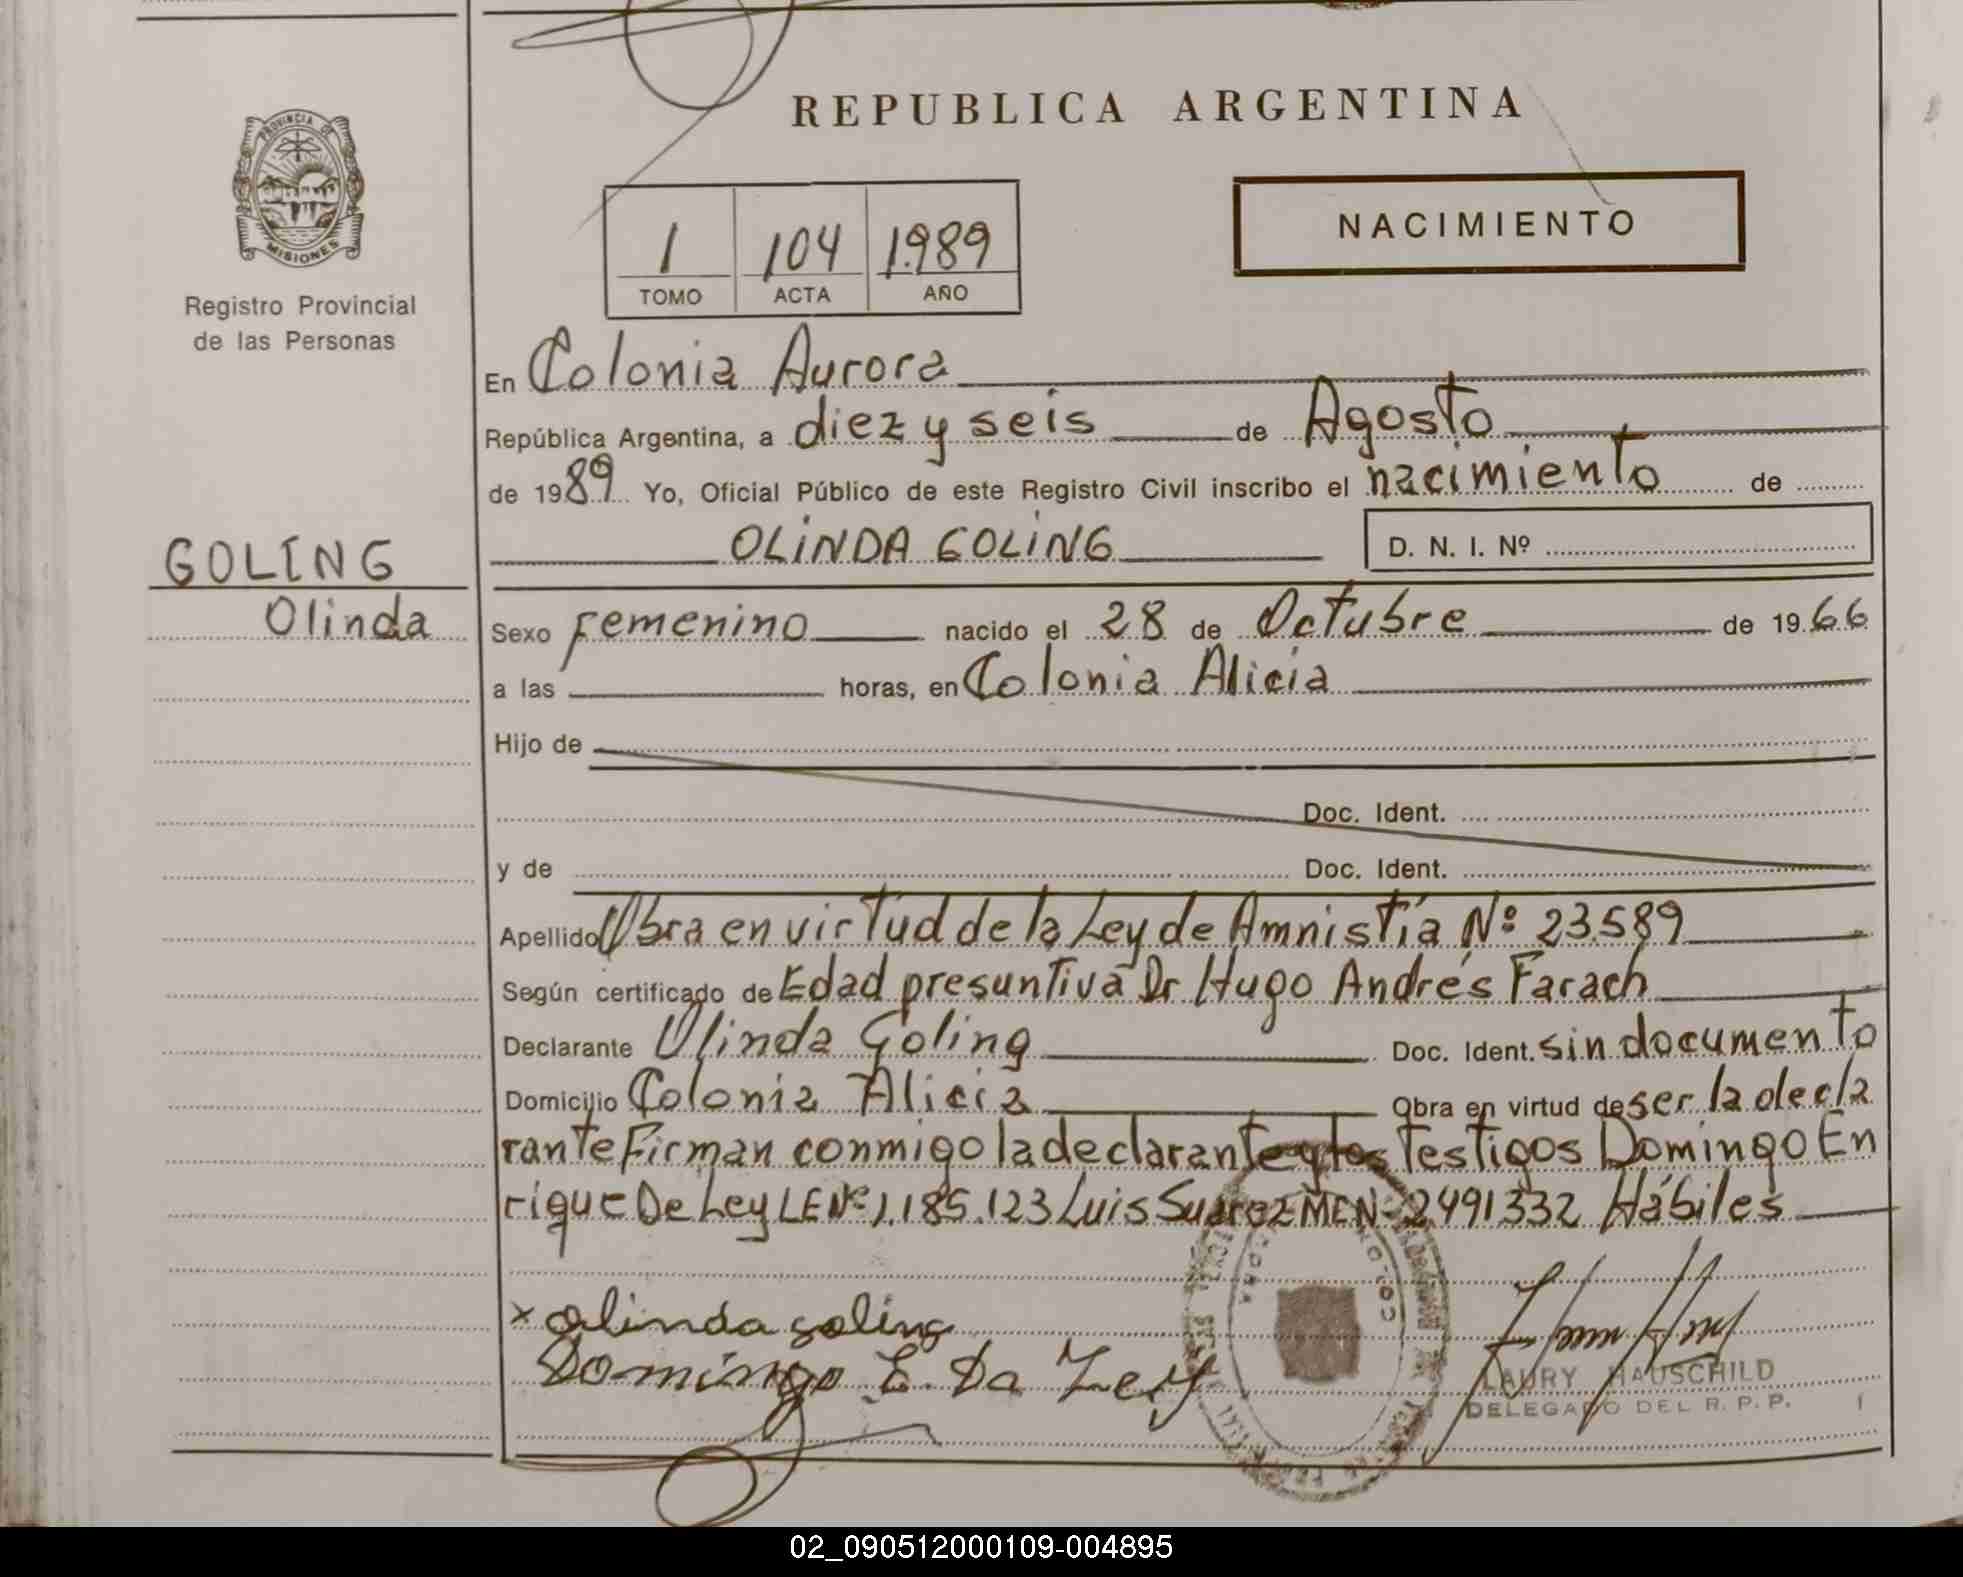 REPUBLICA ARGENTINA
PROVINCIA DE
MISIONES
Registro Provincial
de las Personas
1 104 1.989
TOMO ACTA AÑO
NACIMIENTO
En Colonia Aurora
República Argentina, a diez y seis de Agosto
de 1989 Yo, Oficial Público de este Registro Civil inscribo el nacimiento de
OLINDA GOLING D. N. I. Nº
GOLING
Olinda
Sexo femenino nacido el 28 de Octubre de 1966
a las horas, en Colonia Alicia
Hijo de
Doc. Ident.
y de Doc. Ident.
Apellido Obra en virtud de la Ley de Amnistía Nº 23.589
Según certificado de Edad presuntiva Dr. Hugo Andrés Farach
Declarante Olinda Goling Doc. Ident. sin documento
Domicilio Colonia Alicia Obra en virtud de ser la decla
rante Firman conmigo la declarante y los Testigos Domingo En
rique De Ley LE Nº 1.185.123 Luis Suarez MCN- 2491332 Hábiles
x olinda goling
Domingo E. Da Ley
LAURY HAUSCHILD
DELEGADO DEL R. P. P.
02_090512000109-004895